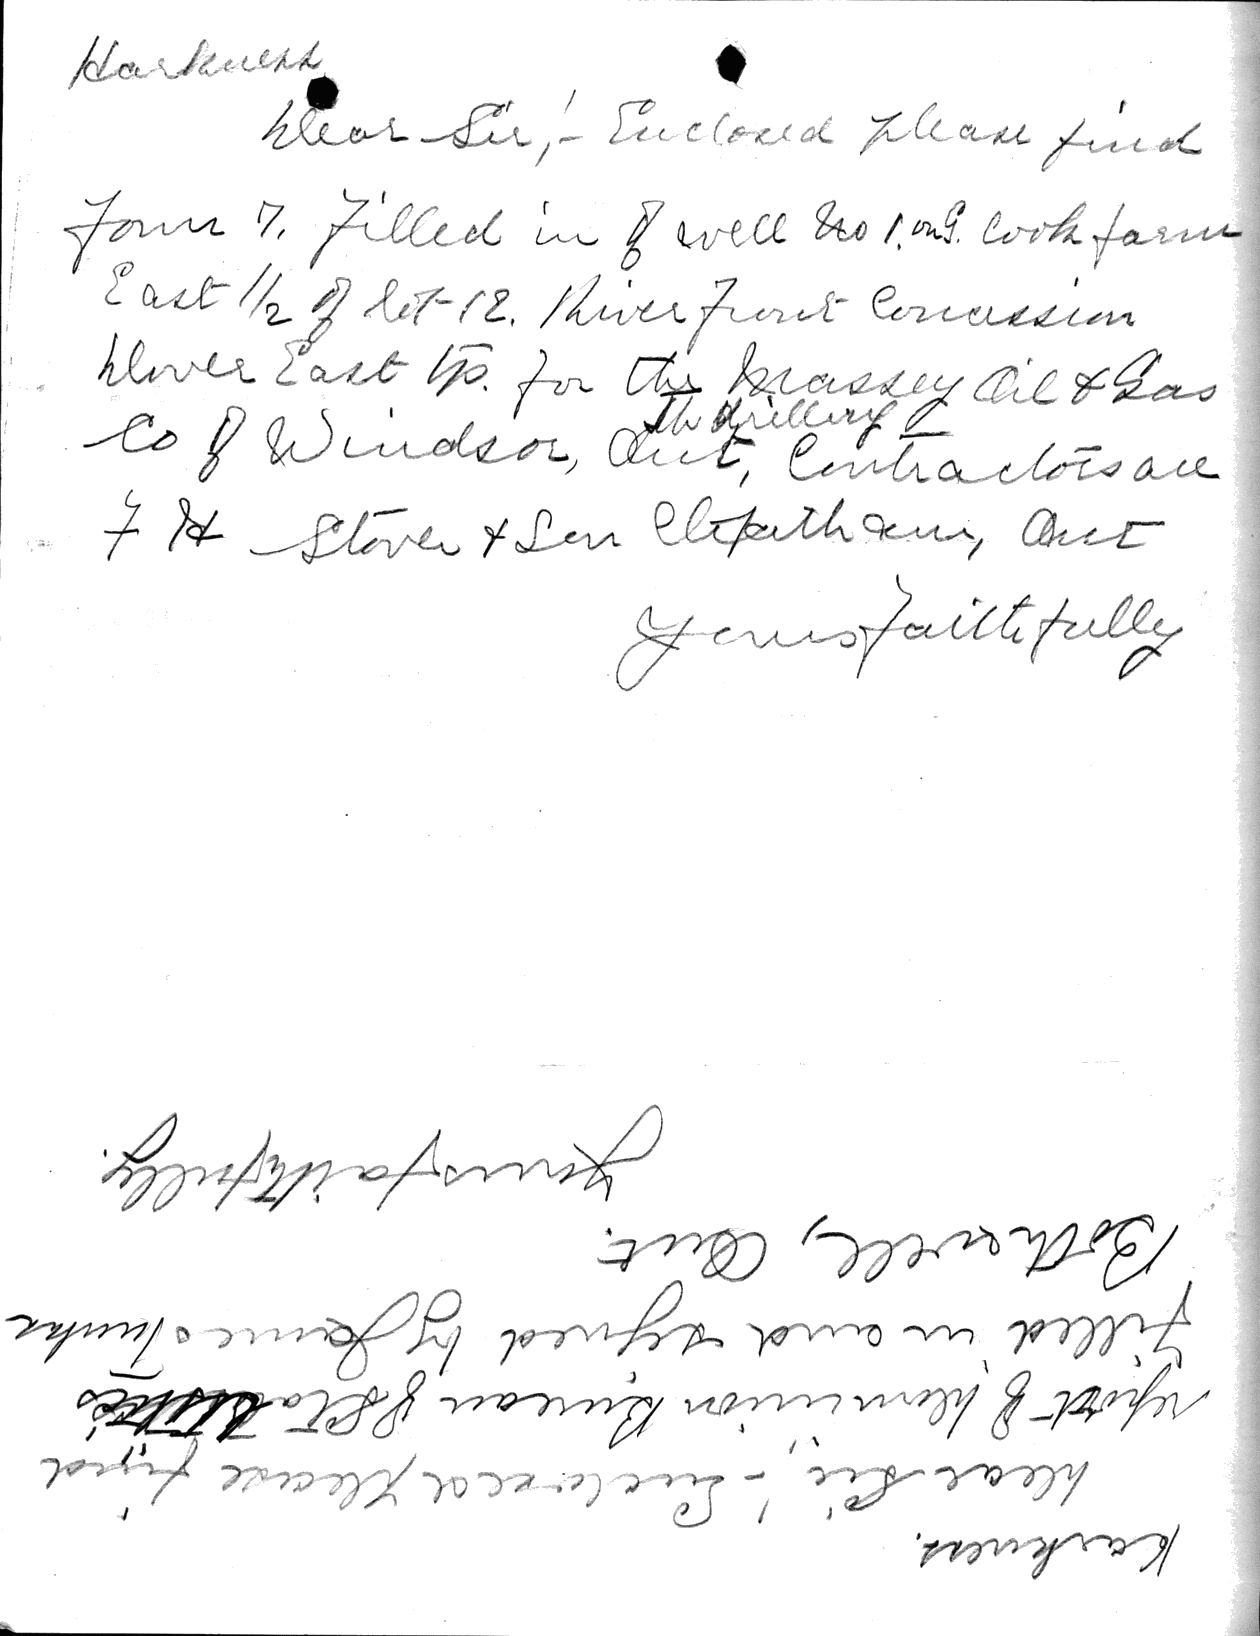 Harkness
Dear Sir;- Enclosed please find
Form 7. Filled in of well No 1. on G. Cook farm
East 1/2 of lot 12. River Front Concession
Dover East Tp. for the Massey Oil & Gas
Co of Windsor, Ont, The drilling Contractors are
F H Stover & Son Chatham, Ont
Yours Faithfully
Harkness.
Dear Sir;- Enclosed please find
report of Dominion Bureau of Statistics
filled in and signed by James
Bothwell, Ont.
Yours faithfully.